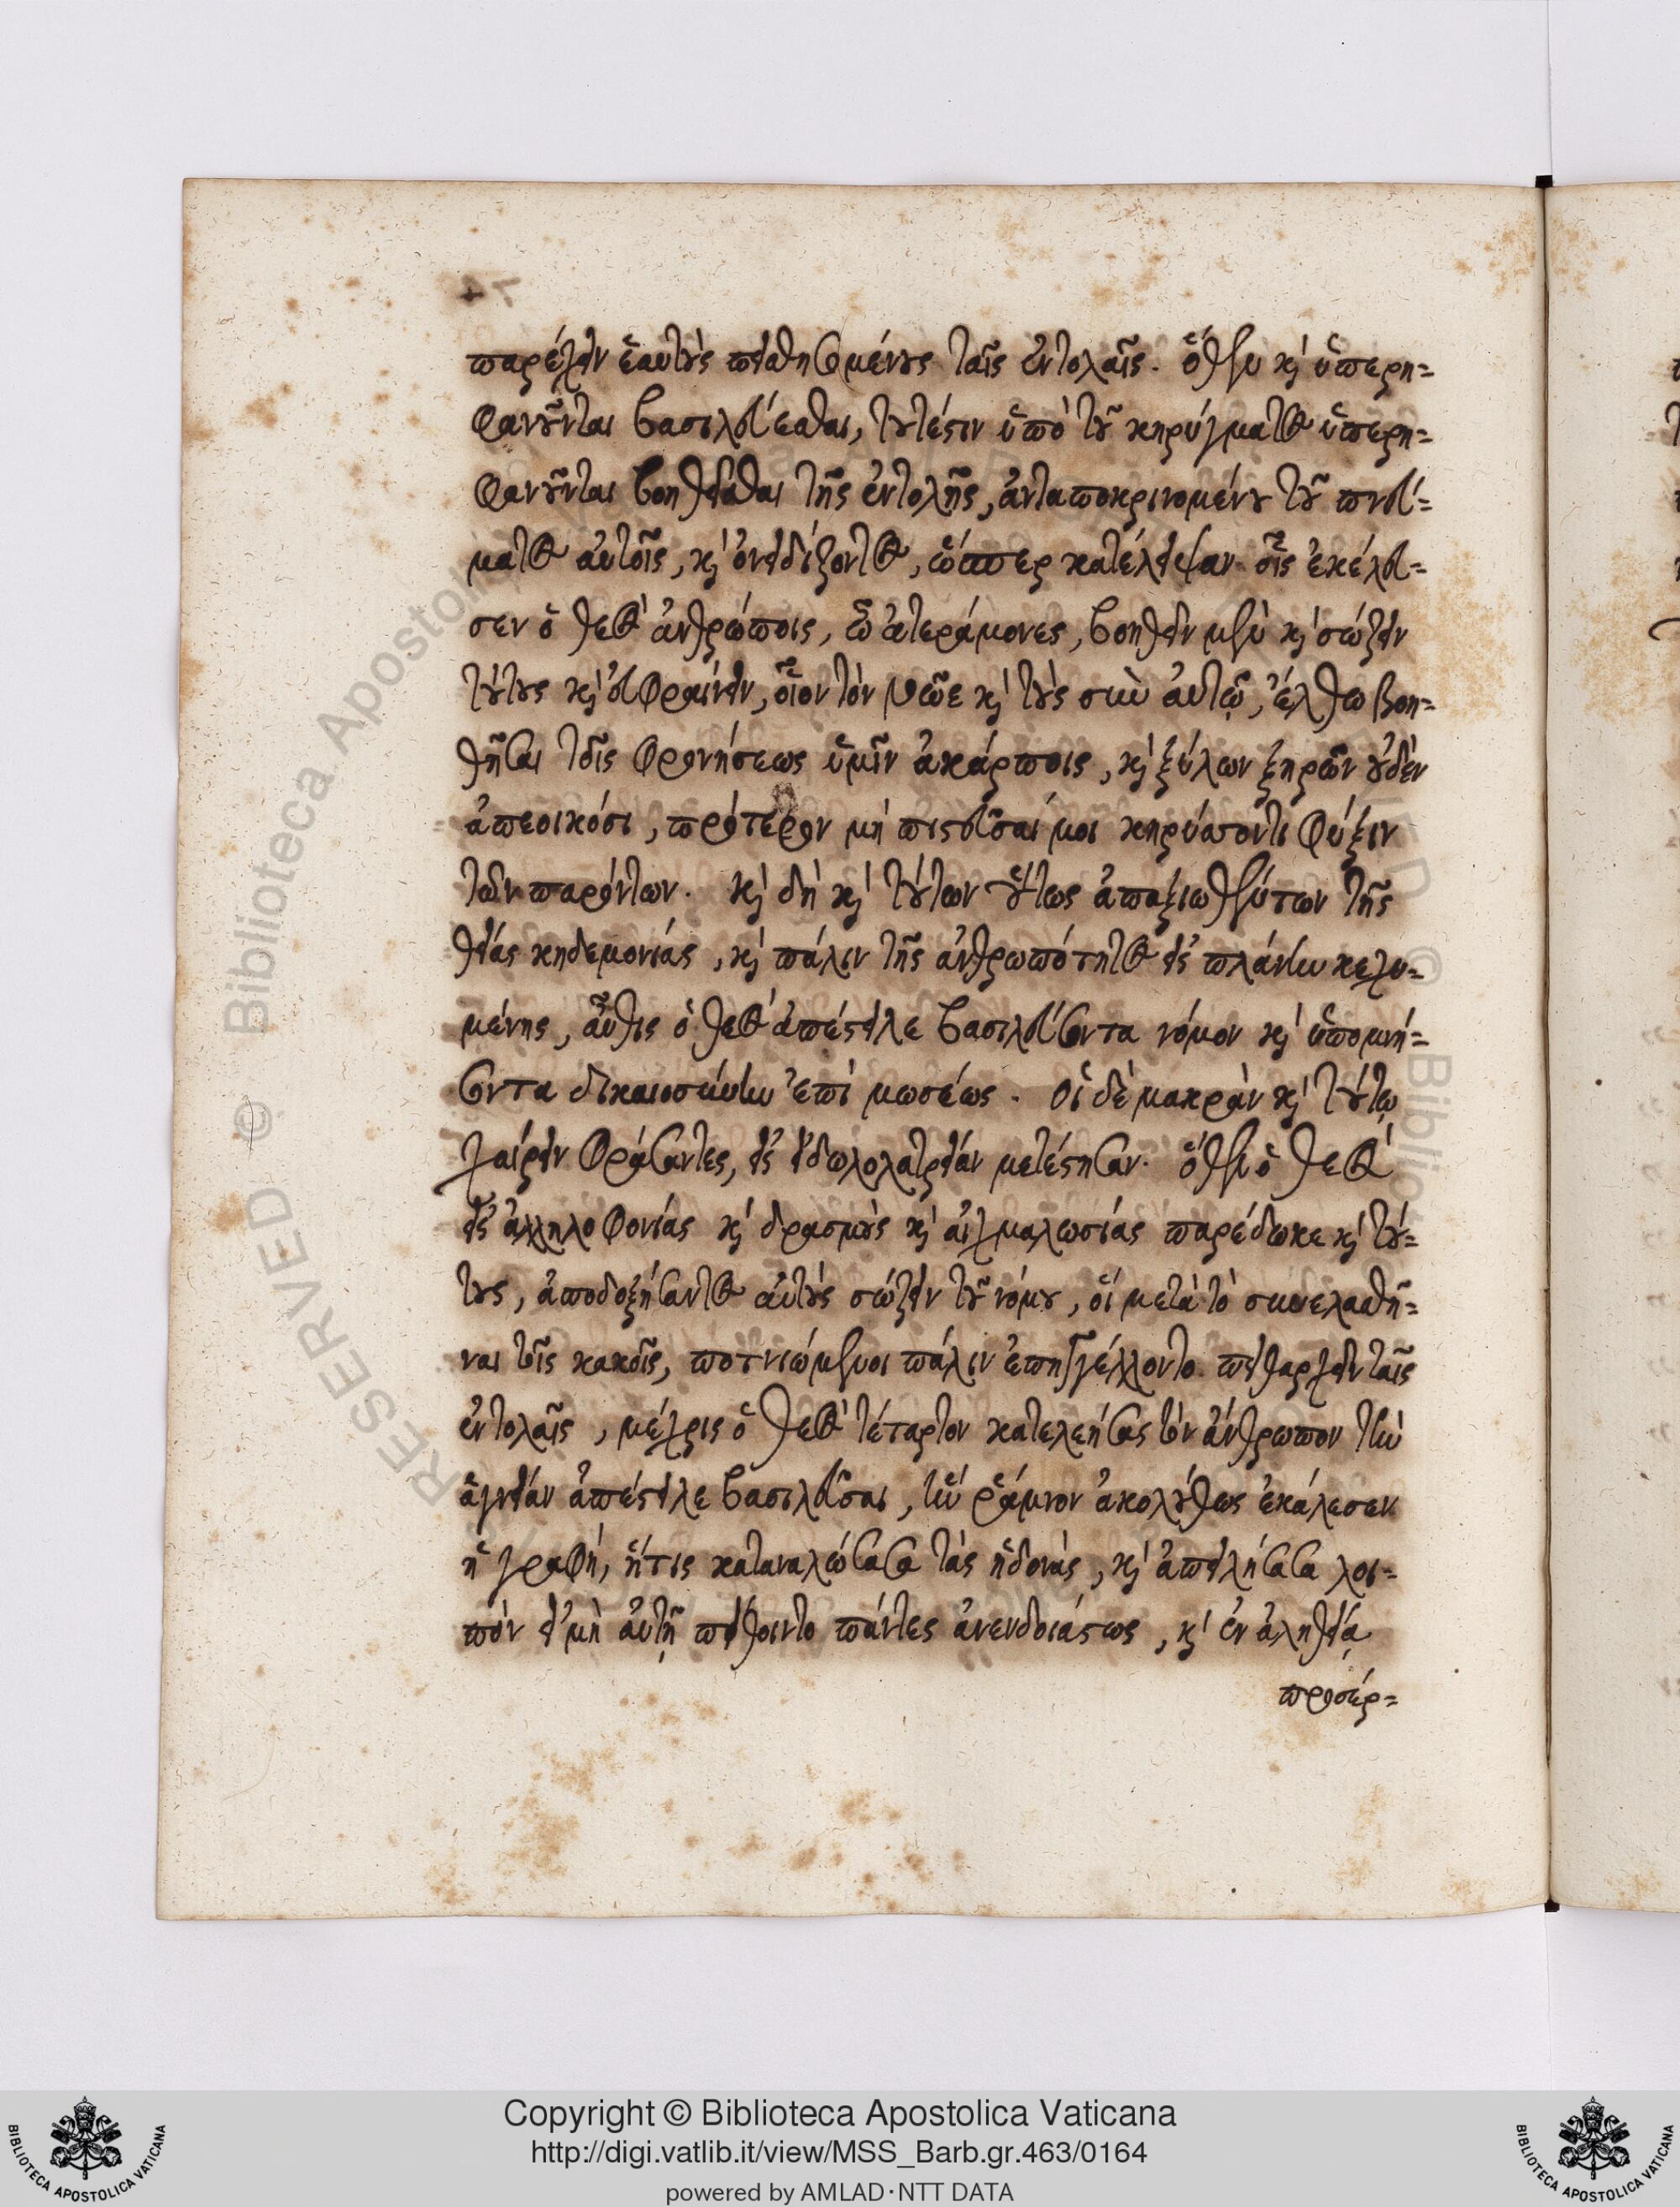 παρέχειν ἑαυτοὺς πειθησομένους ταῖς ἐντολαῖς. ὅθεν καὶ ὑπερη=
φανοῦνται βασιλεύεσθαι, τουτέστιν ὑπὸ τοῦ κηρύγματος ὑπερη=
φανοῦνται βοηθεῖσθαι τῆς ἐντολῆς, ἀνταποκρινομένου τοῦ πνεύ=
ματος αὐτοῖς, καὶ ὀνειδίζοντος, ὥσπερ κατέλειψαν οἷς ἐκέλευ=
σεν ὁ θεὸς ἀνθρώποις, ὦ ἀτεράμονες, βοηθεῖν μὲν καὶ σώζειν
τούτους καὶ εὐφραίνειν, οἷον τὸν νῶε καὶ τοὺς σὺν αὐτῷ, ἔλθω βοη=
θῆσαι τοῖς φρονήσεως ὑμῖν ἀκάρποις, καὶ ξύλων ξηρῶν οὐδὲν
ἀπεοικόσι, πρότερον μὴ πιστεῦσαί μοι κηρύσσοντι φύξιν
τῶν παρόντων. καὶ δὴ καὶ τούτων οὕτως ἀπαξιωθέντων τῆς
θείας κηδεμονίας, καὶ πάλιν τῆς ἀνθρωπότητος εἰς πλάνην κεχυ=
μένης, αὖθις ὁ θεὸς ἀπέστειλε βασιλεύσοντα νόμον καὶ ὑπομνή=
σοντα δικαιοσύνην ἐπὶ μωσέως. οἱ δὲ μακρὰν καὶ τούτῳ
χαίρειν φράσαντες, εἰς εἰδωλολατρείαν μετέστησαν. ὅθεν ὁ θεὸς
εἰς ἀλληλοφονίας καὶ δρασμοὺς καὶ αἰχμαλωσίας παρέδωκε καὶ τού=
τους, ἀποδοξήσαντος αὐτοὺς σώζειν τοῦ νόμου, οἳ μετὰ τὸ συνελασθῆ=
ναι τοῖς κακοῖς, ποτνιώμενοι πάλιν ἐπηγγέλλοντο πειθαρχεῖν ταῖς
ἐντολαῖς, μέχρις ὁ θεὸς τέταρτον κατελεήσας τὸν ἄνθρωπον τὴν
ἁγνείαν ἀπέστειλε βασιλεῦσαι, ἣν ῥάμνον ἀκολούθως ἐκάλεσεν
ἡ γραφή, ἥτις καταναλώσασα τὰς ἡδονὰς, καὶ ἀπειλήσασα λοι=
πὸν εἰ μὴ αὐτῇ πείθοιντο πάντες ἀνενδοιάστως, καὶ ἐν ἀληθείᾳ
προσέρ=
Copyright © Biblioteca Apostolica Vaticana
http://digi.vatlib.it/view/MSS_Barb.gr.463/0164
powered by AMLAD·NTT DATA
BIBLIOTECA APOSTOLICA VATICANA
BIBLIOTECA APOSTOLICA VATICANA